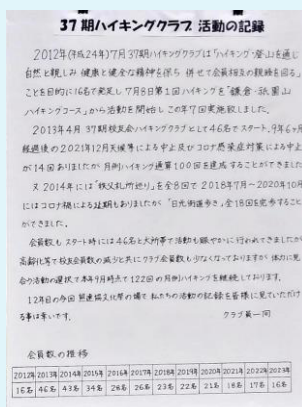 37期ハイキングクラブ 活動の記録
2012年(平成24年)7月37期ハイキングクラブは「ハイキング・登山を通じ
自然と親しみ 健康と健全な精神を保ち 併せて会員相互の親睦を図る」
ことを目的に16名で発足し 7月8日第1回ハイキングを「鎌倉・祇園山
ハイキングコース」から活動を開始し この年7回実施致しました。
2013年4月 37期校友会ハイキングクラブとして46名でスタート。9年6ヶ月
経過後の2021年12月天候等による中止及びコロナ感染症対策による中止
が14回ありましたが 月例ハイキング通算100回を達成することができました
又 2014年には「秩父札所廻り」を全8回で 2018年7月〜2020年10月
にはコロナ禍による延期もありましたが 「日光街道歩き」全18回を完歩すること
ができました。
会員数も スタート時には46名と大所帯で活動も賑やかに行われてきましたが
高齢化等で校友会員数の減少と共にクラブ会員数も少なくなっておりますが 体力に見
合う活動の選択で本年9月時点で122回の月例ハイキングを継続しております。
12年目の今回 照連協文化祭の場で 私たちの活動の記録を皆様に見ていただけ
る事は幸いです。
クラブ員一同
会員数の推移
2012年 2013年 2014年 2015年 2016年 2017年 2018年 2019年 2020年 2021年 2022年 2023年
16名 46名 43名 34名 28名 26名 23名 22名 21名 18名 17名 16名